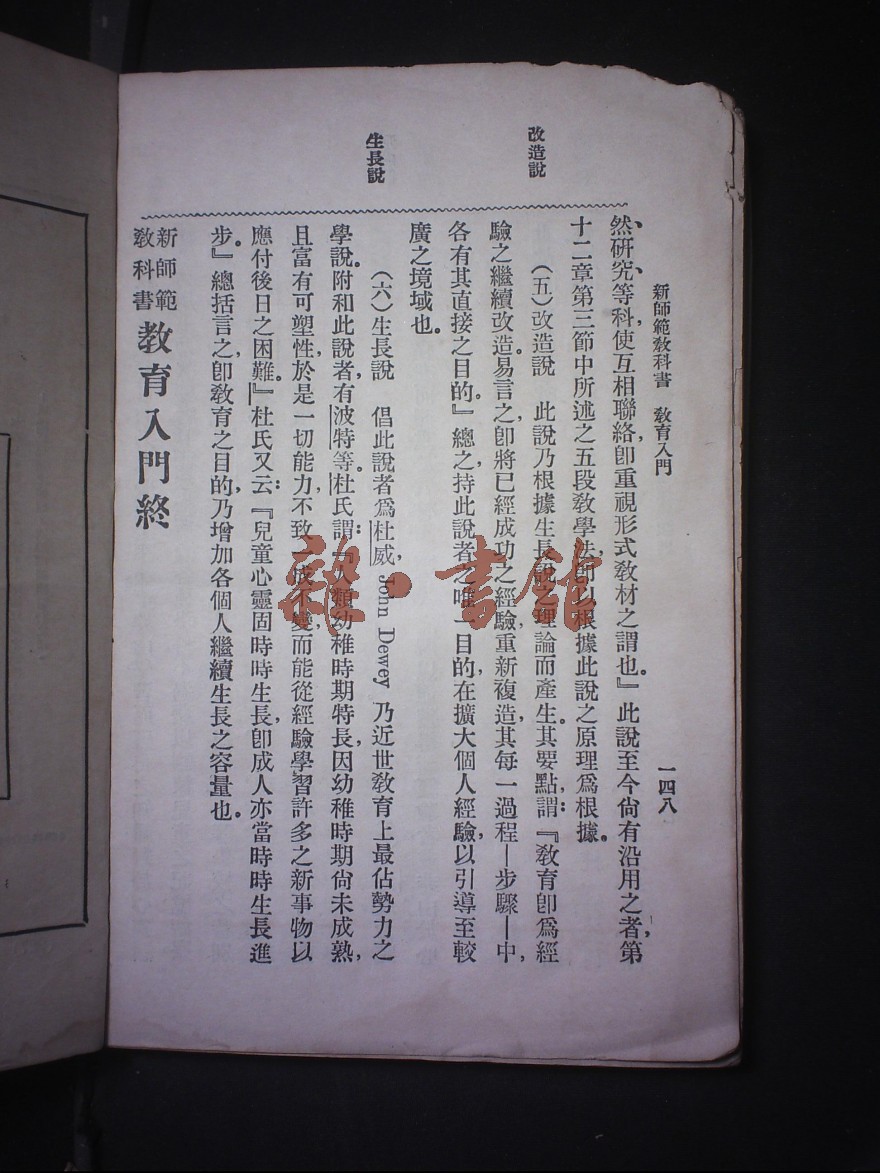 新師範教科書　教育入門
一四八
然、研究、等科、使互相聯絡、卽重視形式教材之謂也。』此說至今尙有沿用之者、第
十二章第三節中所述之五段教學法、卽以根據此說之原理爲根據。
改造說
（五）改造說　此說乃根據生長說之理論而產生。其要點、謂：『教育卽爲經
驗之繼續改造、易言之、卽將已經成功之經驗、重新複造、其每一過程—步驟—中、
各有其直接之目的。』總之、持此說者之唯一目的、在擴大個人經驗、以引導至較
廣之境域也。
生長說
（六）生長說　倡此說者爲杜威、John Dewey 乃近世教育上最佔勢力之
學說。附和此說者、有波特等。杜氏謂：『人類幼稚時期特長、因幼稚時期尙未成熟、
且富有可塑性、於是一切能力、不致一成不變、而能從經驗學習許多之新事物以
應付後日之困難。』杜氏又云：『兒童心靈固時時生長、卽成人亦當時時生長進
步。』總括言之、卽教育之目的、乃增加各個人繼續生長之容量也。
新師範教科書 教育入門終
雜·書館